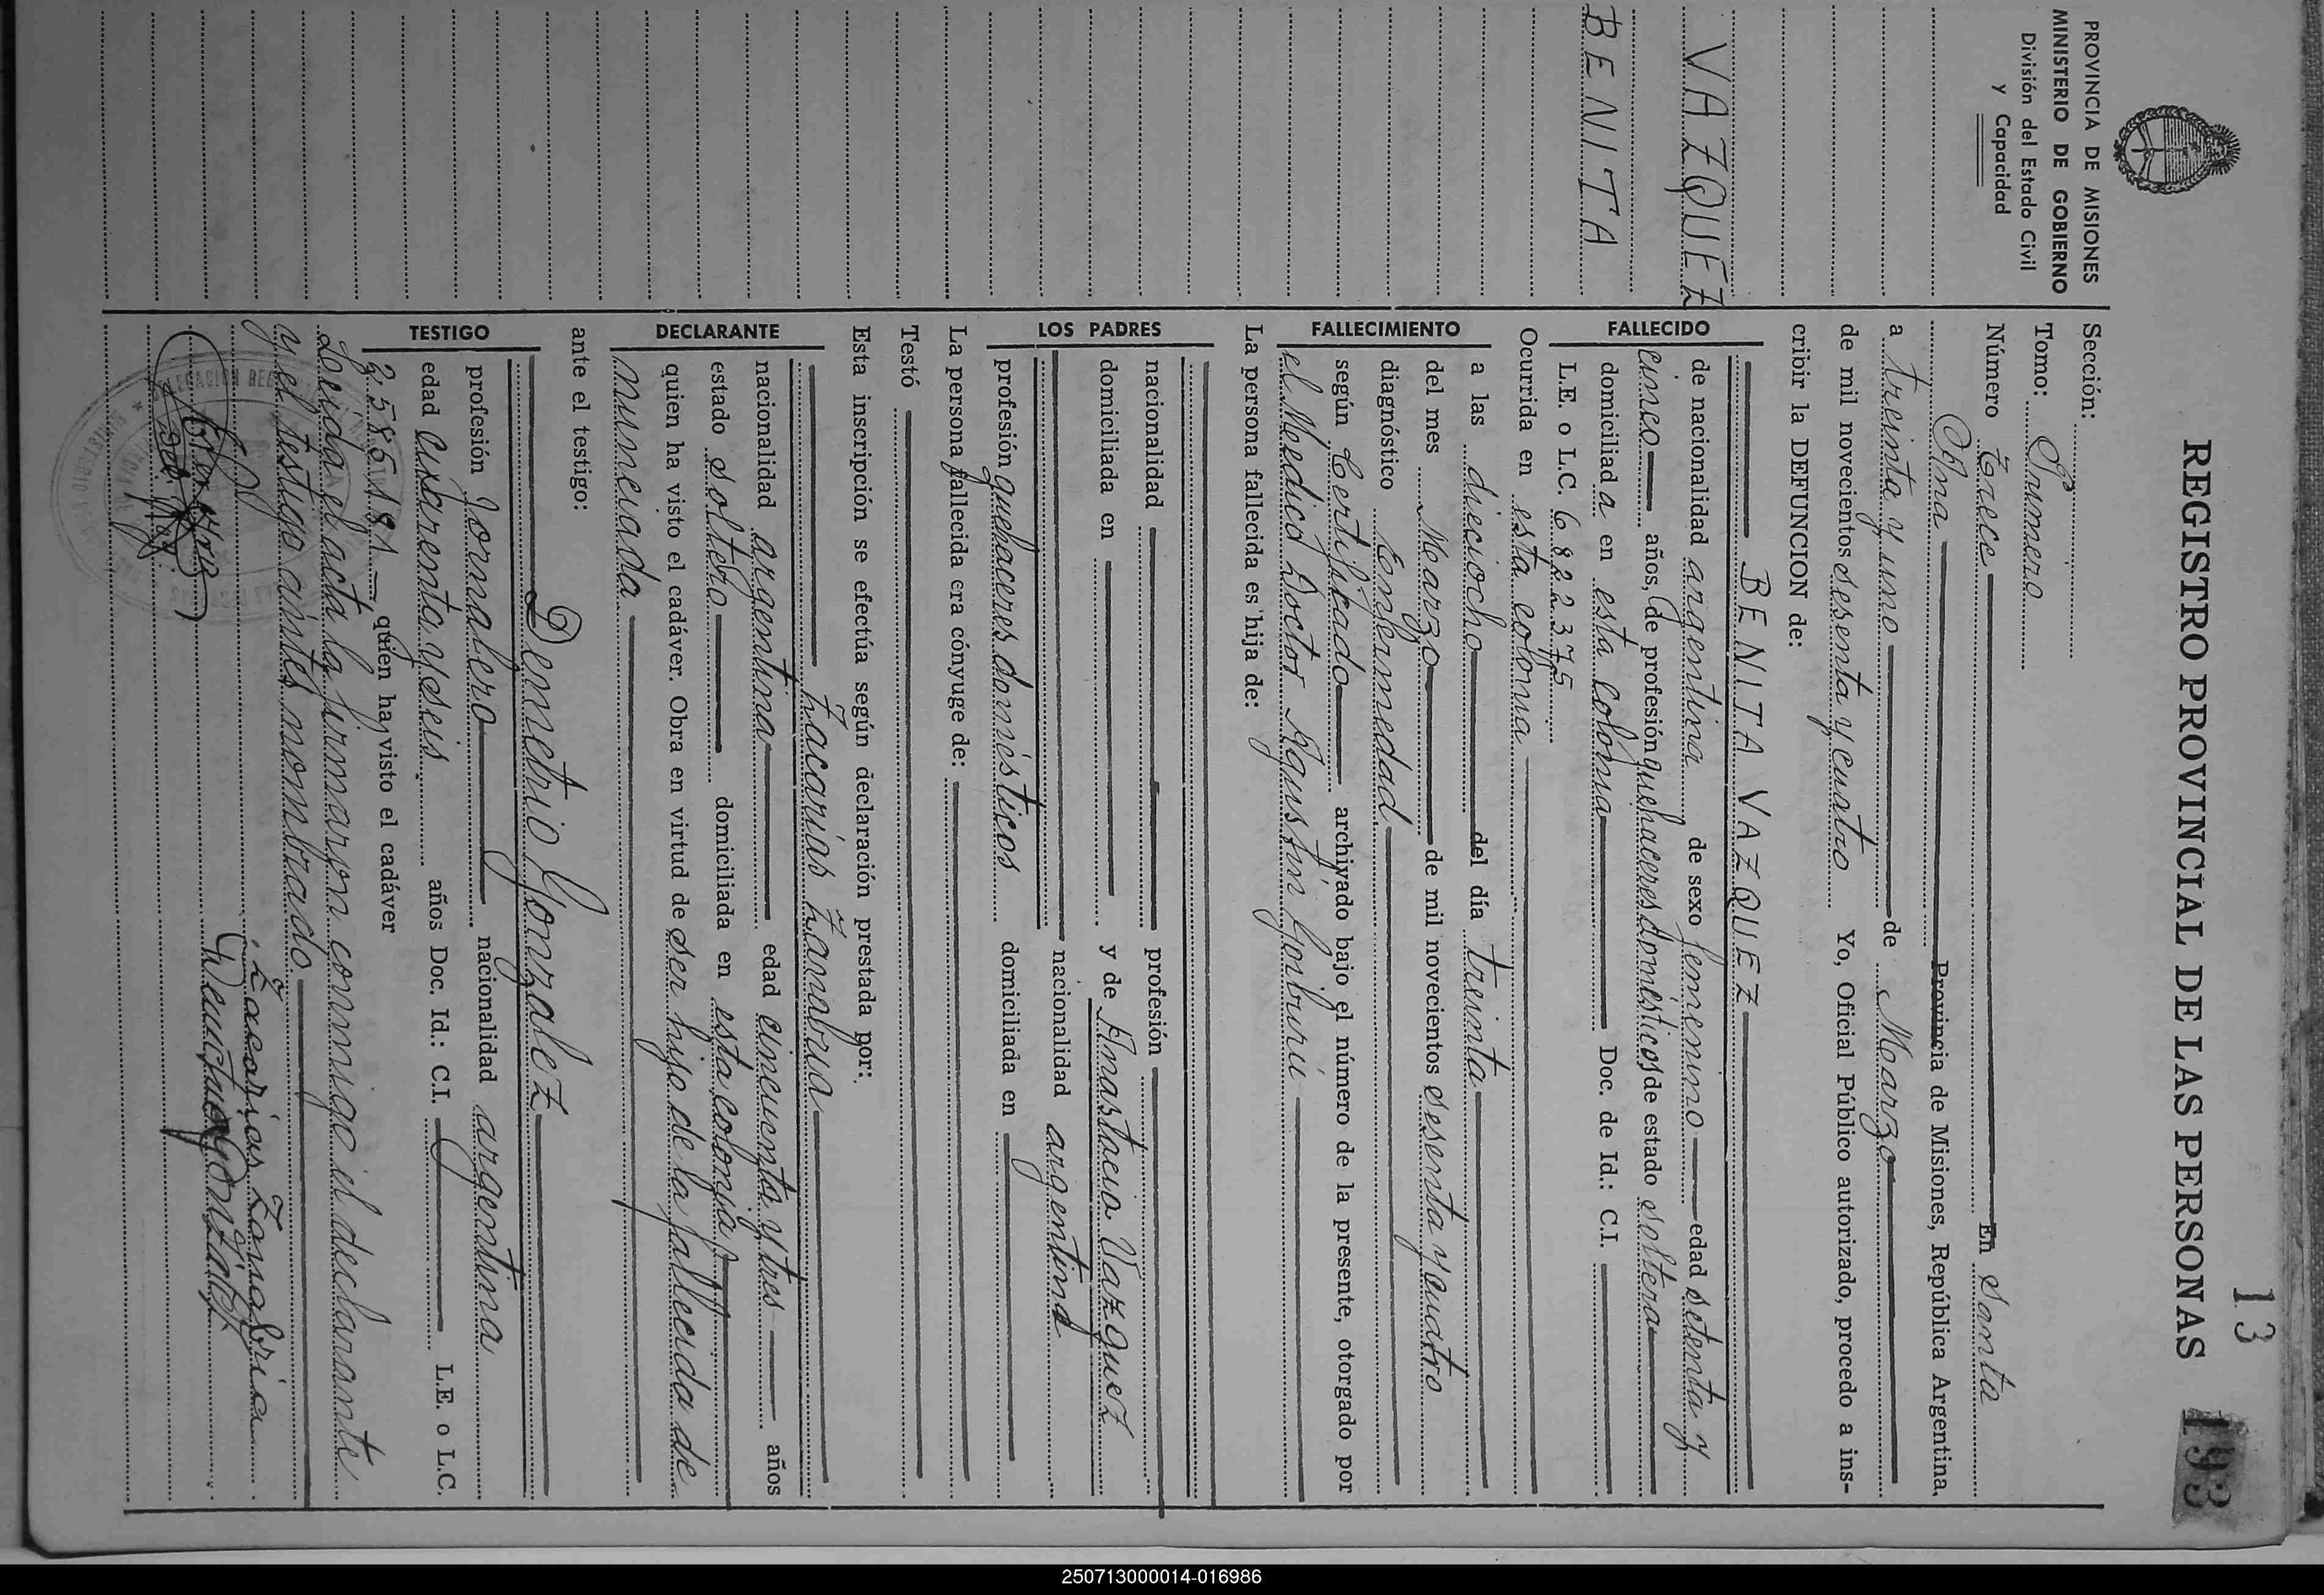 13
193
REGISTRO PROVINCIAL DE LAS PERSONAS
PROVINCIA DE MISIONES
MINISTERIO DE GOBIERNO
División del Estado Civil
y Capacidad
VAZQUEZ
BENITA
Sección:
Tomo: Primero
Número Trece En Santa
Ana Provincia de Misiones, República Argentina,
a treinta y uno de Marzo
de mil novecientos sesenta y cuatro Yo, Oficial Público autorizado, procedo a ins-
cribir la DEFUNCION de:
FALLECIDO
BENITA VAZQUEZ
de nacionalidad argentina de sexo femenino edad setenta y
cinco años, de profesión quehaceres domésticos de estado soltera
domiciliada en esta colonia Doc. de Id.: C.I.
L.E. o L.C. 6822375
Ocurrida en esta colonia
FALLECIMIENTO
a las dieciocho del día treinta
del mes Marzo de mil novecientos sesenta y cuatro
diagnóstico Enfermedad
según Certificado archivado bajo el número de la presente, otorgado por
el Médico Doctor Agustín Goiburú
La persona fallecida es hija de:
LOS PADRES
nacionalidad profesión
domiciliada en y de Anastacia Vazquez
nacionalidad argentina
profesión quehaceres domésticos domiciliada en
La persona fallecida era cónyuge de:
Testó
Esta inscripción se efectúa según declaración prestada por:
DECLARANTE
Zacarías Zanabria
nacionalidad argentina edad cincuenta y tres años
estado soltero domiciliada en esta colonia
quien ha visto el cadáver. Obra en virtud de ser hijo de la fallecida de
nunciada
ante el testigo:
TESTIGO
Demetrio Gonzalez
profesión Jornalero nacionalidad argentina
edad cuarenta y seis años Doc. Id.: C.I. L.E. o L.C.
2.585.181 quien ha visto el cadáver
Leída el acta la firmaron conmigo el declarante
y el testigo antes nombrado
Zacarias Zanabria
Gonzalez
250713000014-016986